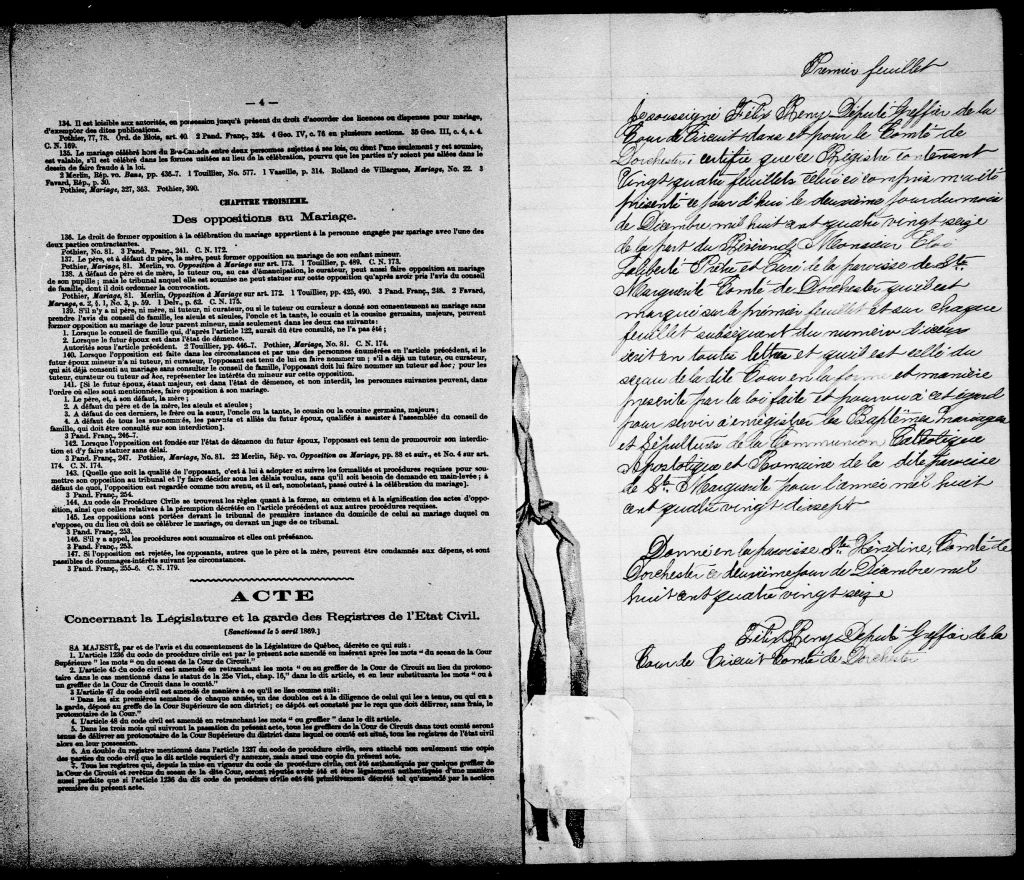 — 4 —
134. Il est loisible aux autorités, en possession jusqu'à présent du droit d'accorder des licences ou dispenses pour mariage,
d'exempter des dites publications.
Pothier, 77, 78. Ord. de Blois, art. 40. 2 Pand. Franç., 324. 4 Geo. IV, c. 76 en plusieurs sections. 35 Geo. III, c. 4, s. 4.
C. N. 169.
135. Le mariage célébré hors du Bas-Canada entre deux personnes sujettes à ses lois, ou dont l'une seulement y est soumise,
est valable, s'il est célébré dans les formes usitées au lieu de la célébration, pourvu que les parties n'y soient pas allées dans le
dessin de faire fraude à la loi.
2 Merlin, Rép. vo. Bans, pp. 436-7. 1 Touillier, No. 577. 1 Vazeille, p. 314. Rolland de Villargues, Mariage, No. 22. 3
Favard, Rép., p. 30.
Pothier, Mariage, 327, 363. Pothier, 390.
CHAPITRE TROISIEME.
Des oppositions au Mariage.
136. Le droit de former opposition à la célébration du mariage appartient à la personne engagée par mariage avec l'une des
deux parties contractantes.
Pothier, No. 81. 3 Pand. Franç., 241. C. N. 172.
137. Le père, et à défaut du père, la mère, peut former opposition au mariage de son enfant mineur.
Pothier, Mariage, 81. Merlin, vo. Opposition à Mariage sur art. 173. 1 Touillier, p. 489. C. N. 173.
138. A défaut de père et de mère, le tuteur ou, au cas d'émancipation, le curateur, peut aussi faire opposition au mariage
de son pupille; mais le tribunal auquel elle est soumise ne peut statuer sur cette opposition qu'après avoir pris l'avis du conseil
de famille, dont il doit ordonner la convocation.
Pothier, Mariage, 81. Merlin, Opposition à Mariage sur art. 172. 1 Touillier, pp. 425, 490. 3 Pand. Franç., 248. 2 Favard,
Mariage, s. 2, § 1, No. 3, p. 59. 1 Delv., p. 62. C. N. 175.
139. S'il n'y a ni père, ni mère, ni tuteur, ni curateur, ou si le tuteur ou curateur a donné son consentement au mariage sans
prendre l'avis du conseil de famille, les aïeuls et aïeules, l'oncle et la tante, le cousin et la cousine germains, majeurs, peuvent
former opposition au mariage de leur parent mineur, mais seulement dans les deux cas suivants:
1. Lorsque le conseil de famille qui, d'après l'article 122, aurait dû être consulté, ne l'a pas été;
2. Lorsque le futur époux est dans l'état de démence.
Autorités sous l'article précédent. 2 Touillier, pp. 446-7. Pothier, Mariage, No. 81. C. N. 174.
140. Lorsque l'opposition est faite dans les circonstances et par une des personnes énumérées en l'article précédent, si le
futur époux mineur n'a ni tuteur, ni curateur, l'opposant est tenu de lui en faire nommer un; s'il a déjà un tuteur, ou curateur,
qui ait déjà consenti au mariage sans consulter le conseil de famille, l'opposant doit lui faire nommer un tuteur ad hoc; pour les
tuteur, curateur ou tuteur ad hoc, représenter les intérêts du mineur sur cette opposition.
141. [Si le futur époux, étant majeur, est dans l'état de démence, et non interdit, les personnes suivantes peuvent, dans
l'ordre où elles sont mentionnées, faire opposition à son mariage.
1. Le père, et, à son défaut, la mère;
2. A défaut du père et de la mère, les aïeuls et aïeules;
3. A défaut de ces derniers, le frère ou la sœur, l'oncle ou la tante, le cousin ou la cousine germains, majeurs;
4. A défaut de tous les sus-nommés, les parents et alliés du futur époux, qualifiés à assister à l'assemblée du conseil de
famille, qui doit être consulté sur son interdiction].
3 Pand. Franç., 246-7.
142. Lorsque l'opposition est fondée sur l'état de démence du futur époux, l'opposant est tenu de promouvoir son interdic-
tion et d'y faire statuer sans delai.
3 Pand. Franç., 247. Pothier, Mariage, No. 81. 22 Merlin, Rép. vo. Opposition au Mariage, pp. 88 et suiv., et No. 4 sur art.
174. C. N. 174.
143. [Quelle que soit la qualité de l'opposant, c'est à lui à adopter et suivre les formalités et procédures requises pour sou-
mettre son opposition au tribunal et l'y faire décider sous les délais voulus, sans qu'il soit besoin de demande en main-levée; à
défaut de quoi, l'opposition est regardée comme non avenu, et il est, nonobstant, passé outre à la célébration du mariage].
3 Pand. Franç., 254.
144. Au code de Procédure Civile se trouvent les règles quant à la forme, au contenu et à la signification des actes d'oppo-
sition, ainsi que celles relatives à la péremption décrétée en l'article précédent et aux autres procédures requises.
145. Les oppositions sont portées devant le tribunal de première instance du domicile de celui au mariage duquel on
s'oppose, ou du lieu où doit se célébrer le mariage, ou devant un juge de ce tribunal.
3 Pand. Franç., 253.
146. S'il y a appel, les procédures sont sommaires et elles ont préséance.
3 Pand. Franç., 253.
147. Si l'opposition est rejetée, les opposants, autres que le père et la mère, peuvent être condamnés aux dépens, et sont
passibles de dommages-intérêts suivant les circonstances.
3 Pand. Franç., 255-6. C. N. 179.
ACTE
Concernant la Législature et la garde des Registres de l'Etat Civil.
[Sanctionné le 5 avril 1869.]
SA MAJESTÉ, par et de l'avis et du consentement de la Législature de Québec, décrète ce qui suit:
1. L'article 1236 du code de procédure civile est par le présent acte amendé en insérant après les mots "du sceau de la Cour
Supérieure" les mots "ou du sceau de la Cour de Circuit."
2. L'article 45 du code civil est amendé en retranchant les mots "ou au greffier de la Cour de Circuit au lieu du protono-
taire dans le cas mentionné dans le statut de la 25e Vict., chap. 16," dans le dit article, et en leur substituants les mots "ou à
un greffier de la Cour de Circuit dans le comté."
3 L'article 47 du code civil est amendé de manière à ce qu'il se lise comme suit:
"Dans les six premières semaines de chaque année, un des doubles est à la diligence de celui qui les a tenus, ou qui en a
la garde, déposé au greffe de la Cour Supérieure de son district; ce dépôt est constaté par le reçu que doit délivrer, sans frais, le
protonotaire de la Cour."
4. L'article 48 du code civil est amendé en retranchant les mots "ou greffier" dans le dit article.
5. Dans les trois mois qui suivront la passation du présent acte, tous les greffiers de la Cour de Circuit dans tout comté seront
tenus de délivrer au protonotaire de la Cour Supérieure du district dans lequel ce comté est situé, tous les registres de l'état civil
alors en leur possession.
6. Au double du registre mentionné dans l'article 1237 du code de procédure civile, sera attaché non seulement une copie
des parties du code civil que le dit article requiert d'y annexer, mais aussi une copie du présent acte.
7. Tous les registres qui, depuis la mise en vigueur du code de procédure civile, ont été authentiqués par quelque greffier de
la Cour de Circuit et revêtus du sceau de la dite Cour, seront réputés avoir été et être légalement authentiqués d'une manière
aussi parfaite que si l'article 1236 du dit code de procédure civile eût été primitivement décrété tel qu'amendé par la section
première du présent acte.
Premier feuillet
Je soussigné Félix Remy Député Greffier de la
Cour de Circuit dans et pour le Comté de
Dorchester certifie que ce Régistre contenant
Vingt quatre feuillets celui ci compris m'a été
présenté ce jour d'hui le deuxième jour du mois
de Décembre mil huit cent quatre vingt seize
de la part du Révérend Monsieur Eloi
Laliberté Prêtre et Curé de la paroisse de Ste
Marguerite Comté de Dorchester qu'il est
marqué sur le premier feuillet et sur chaque
feuillet subséquent du numéro d'icelui
écrit en toutes lettres et qu'il est cellé du
sceau de la dite Cour en la forme et manière
préscrite par la loi faite et pourvu à cet égard
pour servir à enrégistrer les Baptêmes mariages
et Sépultures de la Communion Catholique
Apostolique et Romaine de la dite paroisse
de Ste Marguerite pour l'année mil huit
cent quatre vingt dixsept
Donné en la paroisse Ste Hénédine, Comté de
Dorchester ce deuxième jour de Décembre mil
huit cent quatre vingt seize
Félix Remy Député Greffier de la
Cour de Circuit Comté de Dorchester